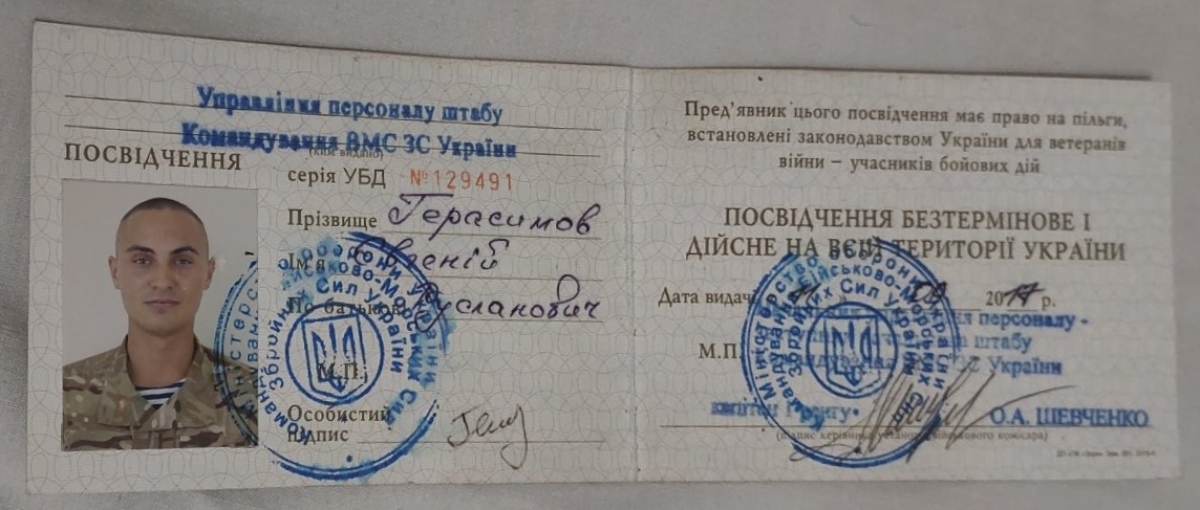 Управління персоналу штабу
Командування ВМС ЗС України
(ким видано)
ПОСВІДЧЕННЯ
серія УБД №129491
Прізвище Герасимов
Ім'я Євгеній
По батькові Русланович
М.П.
Особистий
підпис
Міністерство оборони України
Командування Військово-Морських Сил
Збройних Сил України
Пред'явник цього посвідчення має право на пільги,
встановлені законодавством України для ветеранів
війни – учасників бойових дій
ПОСВІДЧЕННЯ БЕЗТЕРМІНОВЕ І
ДІЙСНЕ НА ВСІЙ ТЕРИТОРІЇ УКРАЇНИ
Дата видачі 09 2017 р.
персоналу -
штабу
ЗС України
М.П.
О.А. ШЕВЧЕНКО
Міністерство оборони України
Командування Військово-Морських Сил
Збройних Сил України